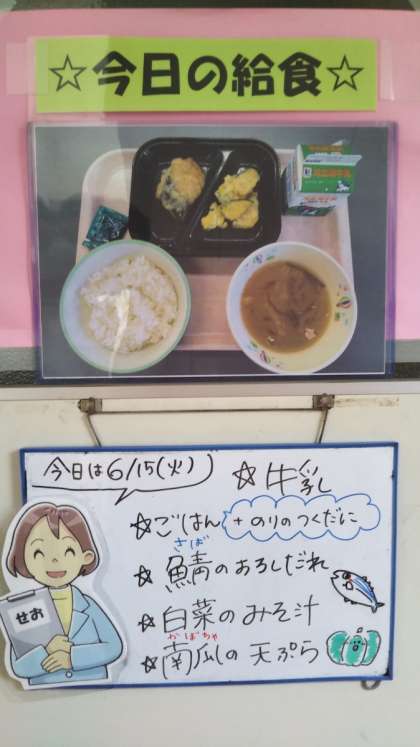 ☆今日の給食☆
今日は6/15(火)
☆牛乳
☆ごはん + のりのつくだに
さば
☆鯖のおろしだれ
☆白菜のみそ汁
かぼちゃ
☆南瓜の天ぷら
せお